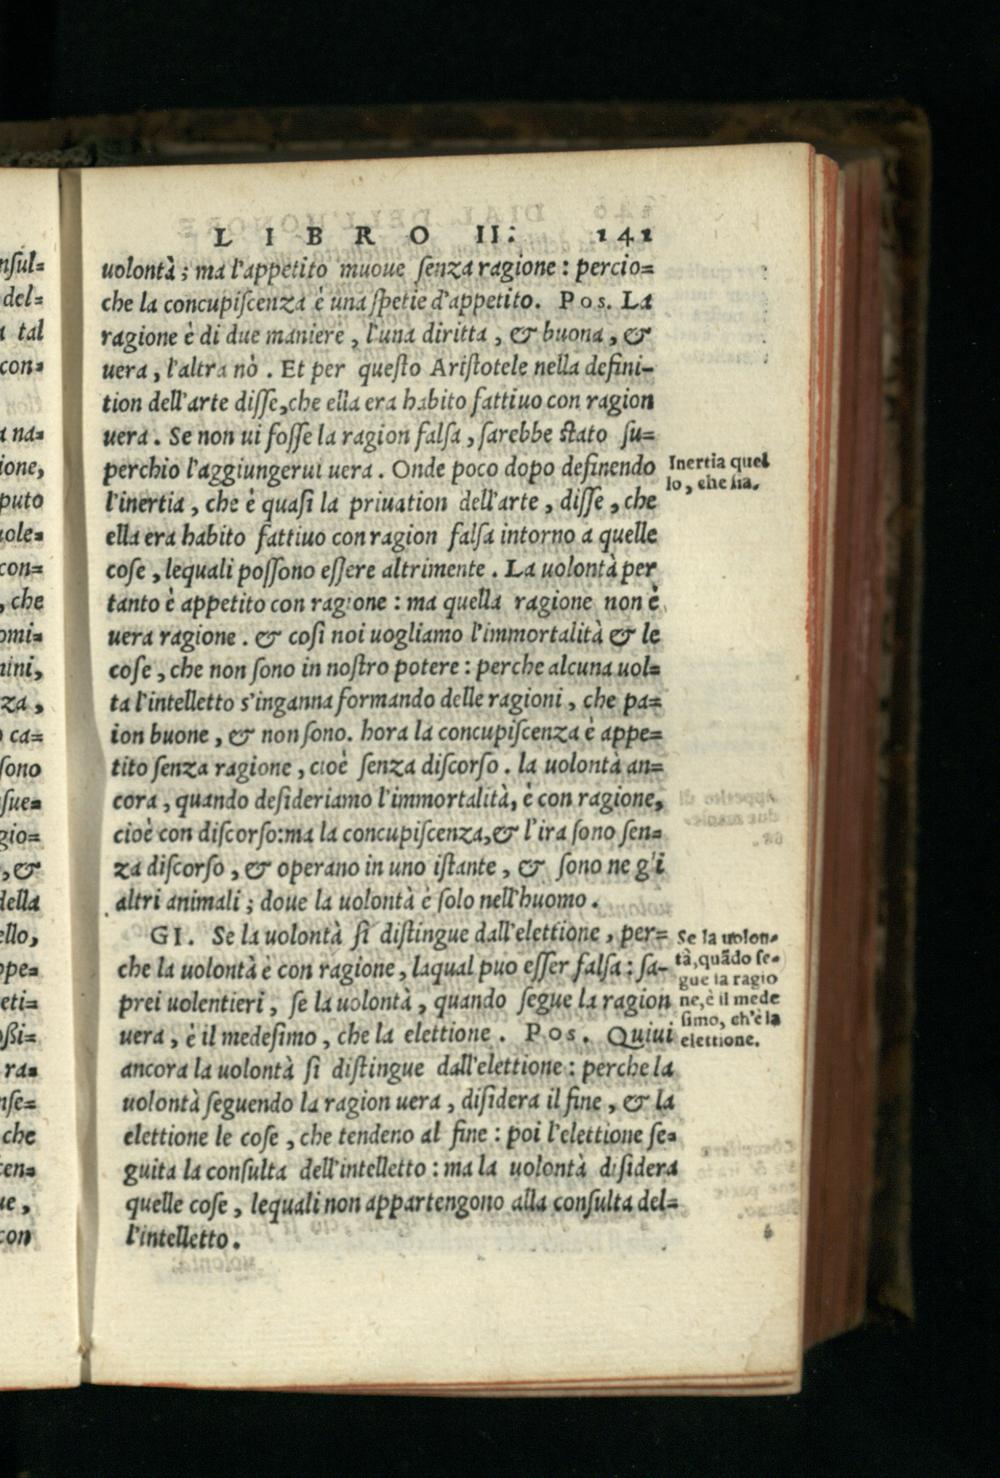 LIBRO II. 141
uolontà; ma l'appetito muoue ſenza ragione: percio=
che la concupiſcenza è una ſpetie d'appetito. Pos. La
ragione è di due maniere, l'una diritta, & buona, &
uera, l'altra nò. Et per queſto Ariſtotele nella defini-
tion dell'arte diſſe, che ella era habito fattiuo con ragion
uera. Se non ui foſſe la ragion falſa, ſarebbe ſtato ſu=
perchio l'aggiungerui uera. Onde poco dopo definendo
l'inertia, che è quaſi la priuation dell'arte, diſſe, che
ella era habito fattiuo con ragion falſa intorno a quelle
coſe, lequali poſſono eſſere altrimente. La uolontà per
tanto è appetito con ragione: ma quella ragione non è
uera ragione. & coſi noi uogliamo l'immortalità & le
coſe, che non ſono in noſtro potere: perche alcuna uol=
ta l'intelletto s'inganna formando delle ragioni, che pa=
ion buone, & non ſono. hora la concupiſcenza è appe=
tito ſenza ragione, cioè ſenza diſcorſo. la uolontà an=
cora, quando deſideriamo l'immortalità, è con ragione,
cioè con diſcorſo: ma la concupiſcenza, & l'ira ſono ſen=
za diſcorſo, & operano in uno iſtante, & ſono ne gli
altri animali; doue la uolontà è ſolo nell'huomo.
GI. Se la uolontà ſi diſtingue dall'elettione, per=
che la uolontà è con ragione, laqual puo eſſer falſa: ſa-
prei uolentieri, ſe la uolontà, quando ſegue la ragion
uera, è il medeſimo, che la elettione. Pos. Quiui
ancora la uolontà ſi diſtingue dall'elettione: perche la
uolontà ſeguendo la ragion uera, diſidera il fine, & la
elettione le coſe, che tendeno al fine: poi l'elettione ſe=
guita la conſulta dell'intelletto: ma la uolontà diſidera
quelle coſe, lequali non appartengono alla conſulta del=
l'intelletto.
Inertia quel
lo, che ſia.
Se la uolon=
tà, quādo ſe=
gue la ragio
ne, è il mede
ſimo, ch'è la
elettione.
nſul=
del=
tal
con=
na=
ione,
puto
uole=
con=
, che
omi=
nini,
za,
ca=
ſono
ſue=
gio=
, &
della
ello,
ppe=
eti=
oßi=
ra=
nſe=
che
cen=
ue,
con